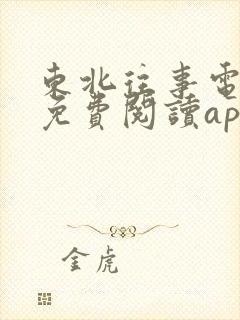 東北往事電
免費閱讀ap
金虎